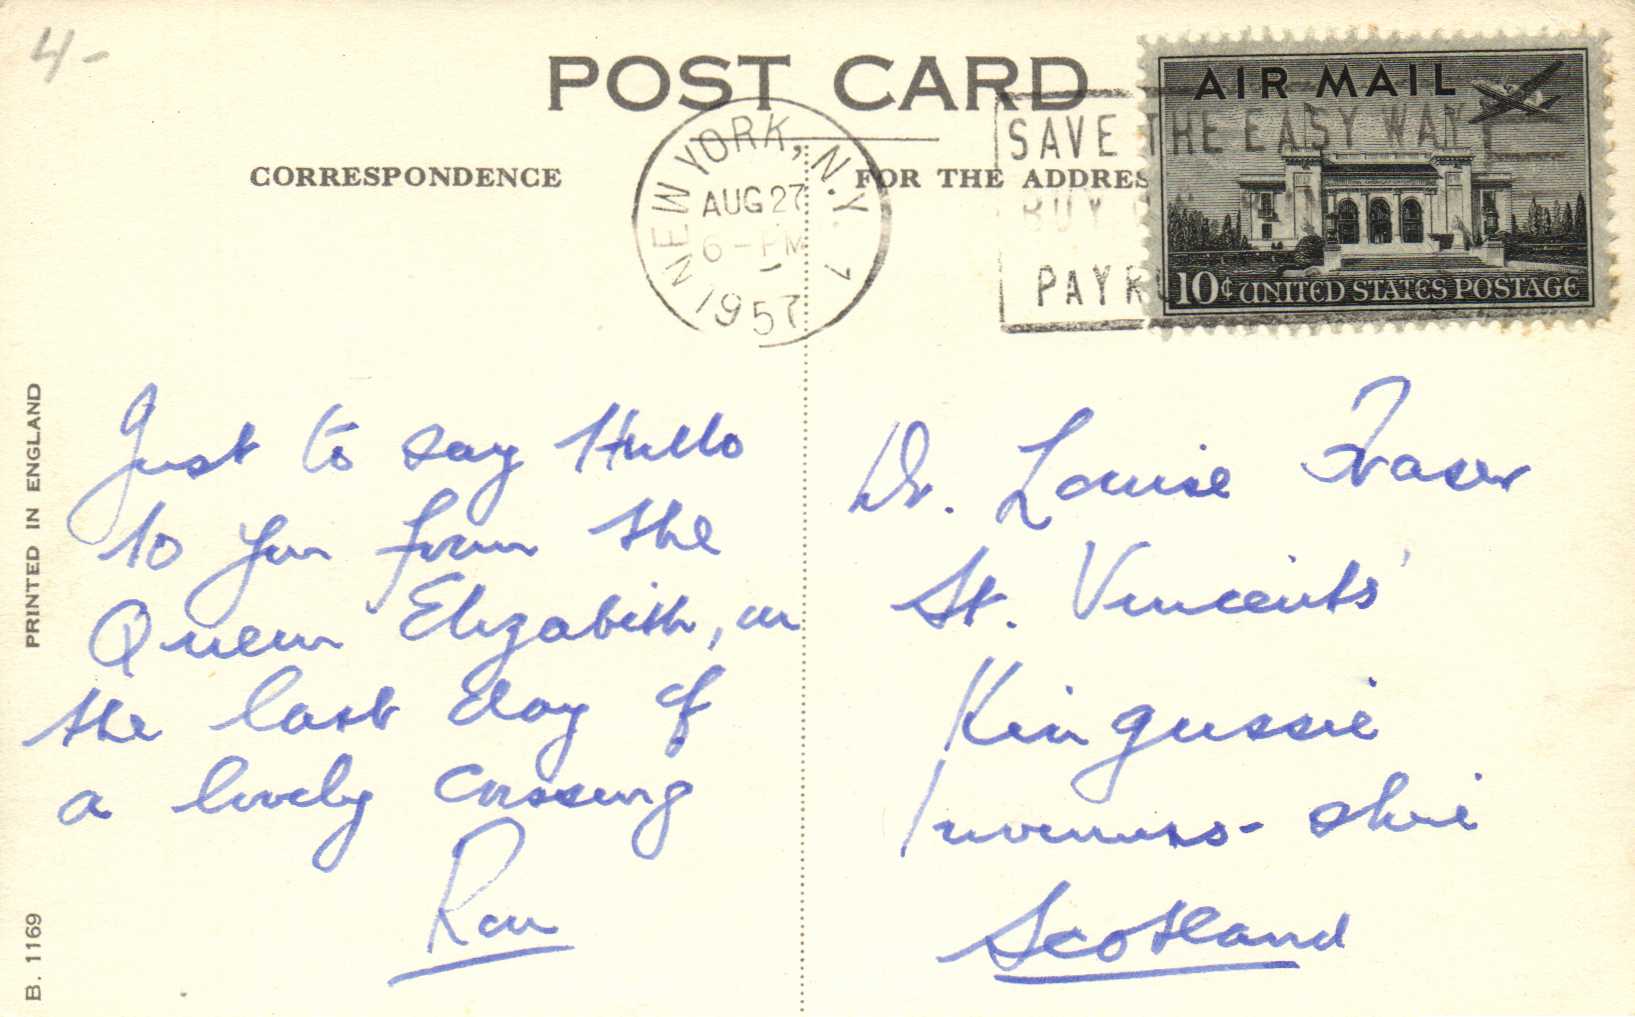 4-
POST CARD
CORRESPONDENCE
FOR THE ADDRES
NEW YORK, N.Y. 7
AUG 27
6-PM
1957
SAVE THE EASY WAY
BUY
PAYR
AIR MAIL
10¢ UNITED STATES POSTAGE
PRINTED IN ENGLAND
B. 1169
Just to say Hullo
to you from the
Queen Elizabeth, on
the last day of
a lovely crossing
Dr. Louise Fraser
St. Vincents'
Kingussie
Inverness-shire
Scotland